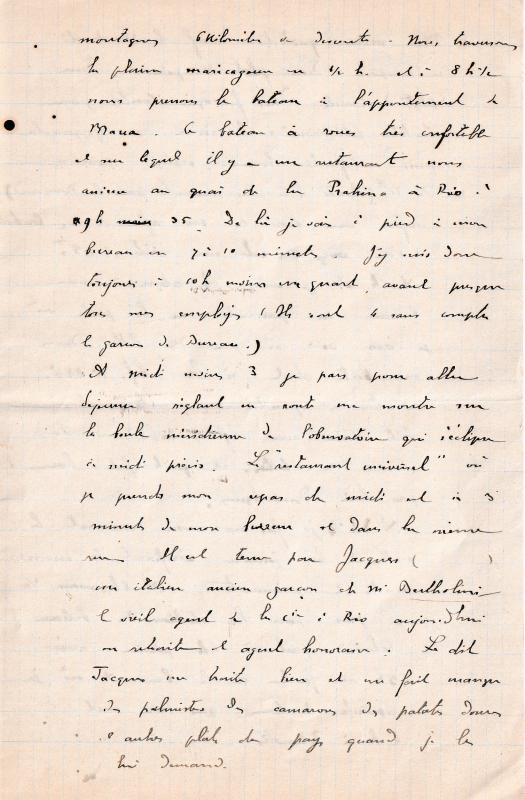 montagnes 6 kilomètres de descente. Nous traversons
la plaine marécageuse en 1/2 h. et à 8 h 1/2
nous prenons le bateau à l'appontement de
Maua. Ce bateau à roues très confortable
et sur lequel il y a un restaurant nous
amène au quai de la Prahina à Rio à
9h 35. De là je vais à pied à mon
bureau en 7 à 10 minutes. J'y suis donc
toujours à 10h moins un quart, avant presque
tous mes employés (Ils sont 4 sans compter
le garçon de Bureau.)
A midi moins 3 je pars pour aller
déjeuner réglant en route ma montre sur
la boule méridienne de l'observatoire qui s'éclipse
à midi précis. Le "restaurant universel" où
je prends mon repas de midi est à 3
minutes de mon bureau et dans la même
rue. Il est tenu par Jacques ( )
un italien ancien garçon de Mr Bertholini
le vieil agent de la Cie à Rio aujourd'hui
en retraite et agent honoraire. Le dit
Jacques me traite bien et me fait manger
des palmistes des camarons des patates douces
et autres plats du pays quand je les
lui demand.